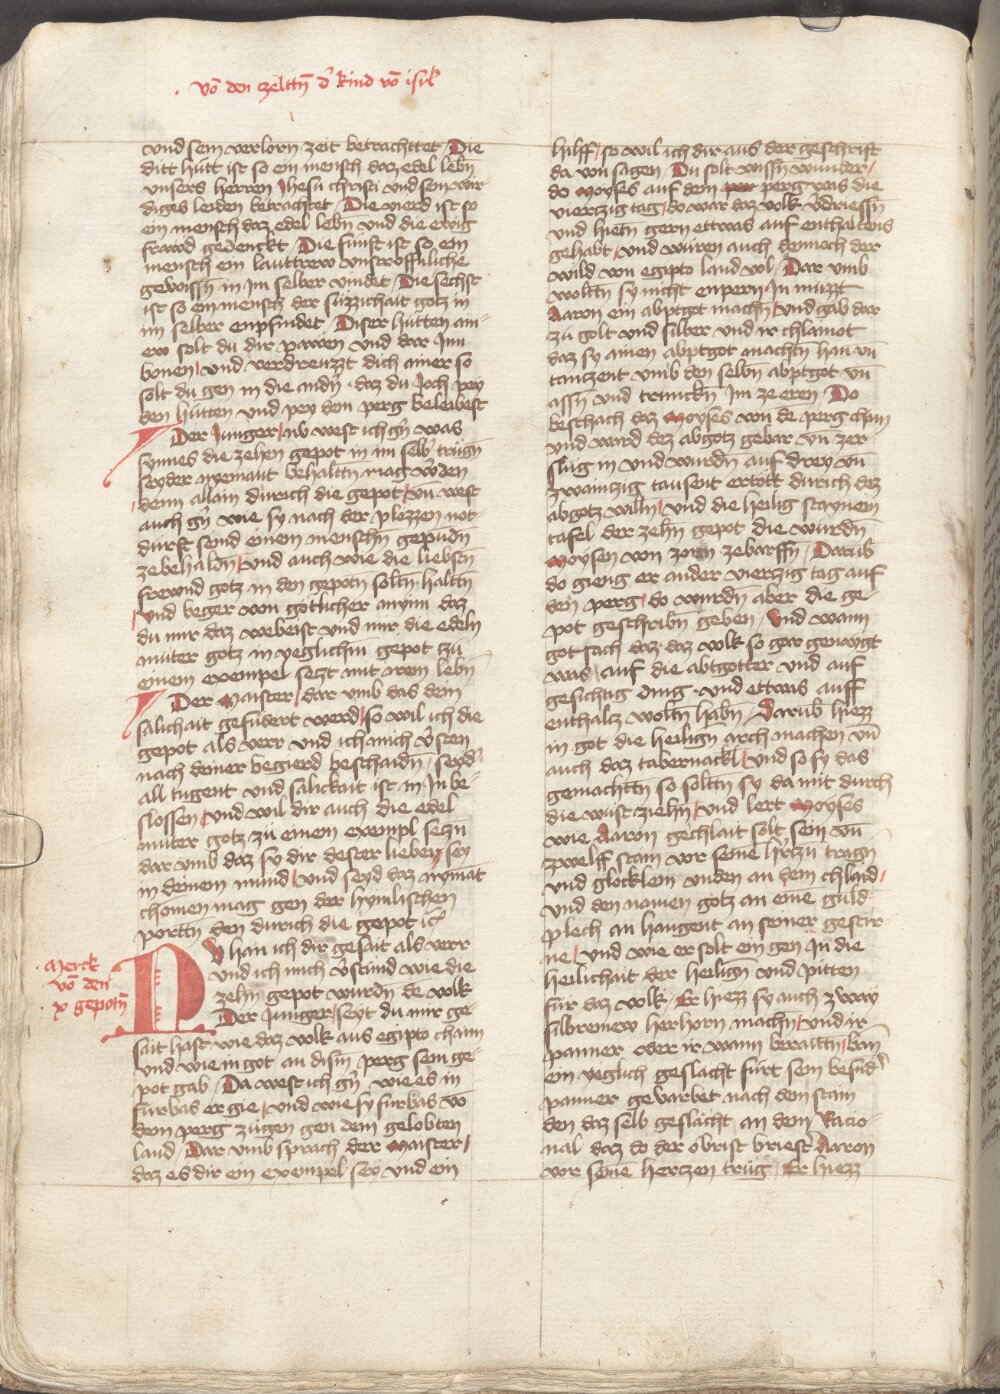 võ den zelttñ d' kind võ isrl
vnd sein verlorn zeit betrachttet Die
ditt hütt ist so ein mensch daz edel lebñ
vnsers herren Jhesu christi vnd sein wir
diges leiden betrachtet / Die vierd ist so
ein mensch daz edel lebñ vnd die ewig
frawd gedenckt / Die fünft ist so ein
mensch ein lauttrew vnstroffmliche
gewissñ in im selber vindet / Die sechst
ist so ein mensch der süzzichait gotz in
im selber enpfindet / Diser hütten ain-
ew solt du dir pawen vnd dar Inn
bonen / vnd verdreuzzt dich ainer so
solt du gen in die andñ . daz du Joch pey
den hütten vnd pey dem perg beleibest
Der Junger / nv west ich gñ was
synnes die zehen gepot in im selb' trügñ
seyder nyemant behalttñ mag w'den
denn allain dürich die gepot / vñ west
auch gñ wie sy nach der plozzen not-
dürft send einem menschñ gepüdñ
zebehaldñ / vnd auch wie die liebstñ
frewnd gotz in den gepotñ solltñ halttñ
vnd beger von götlicher mynn daz
du mir daz webeist vnd mir die edeln
muter gotz in yeglichm gepot zü
einem exempel setzt mit irem lebñ
Der Maister / dar vmb das dem
sälichait gefüdert werd / so wil ich die
gepot als verr vnd ich mich v'sten
nach deiner begierd beschaidñ / seyd
all tugent vnd sälickait ist in In be-
slossen / vnd wil dir auch die edel
muter gotz zü einem exempl setzñ
dar vmb daz sy dir dester lieber sey
in deinem mund / vnd seyd daz nymāt
chomen mag gen der hymlischen
porttñ den dürich die gepot ic̄
Merck
võ den
x gepotñ
Nv han ich dir gesait als verr
vnd ich mich v'stünd wie die
zehñ gepot würdñ de volk
Der Junger / seyt du mir ge-
sait hast wie daz volk aus egipto cham
vnd wie in got an dism perg sein ge-
pot gab / Da west ich gñ wie es in
fürbas ergie / vnd wie sy fürbas vō
dem perg zügen gen dem gelobten
land / Dar vmb sprach der Maister /
daz es dir ein exempel sey vnd ein
hilff / so wil ich dir aus der geschrift
da von sagen / Du solt wissñ wunder /
do Moyses auf dem perg was die
vierczig tag / do war daz volk v'driessñ
vnd hietñ gern ettwas auf enthaltens
gehabt / vnd würen auch dennoch der
wild von egipto land vol / Dar vmb
woltñ sy nicht enpern / In müzt
Aaron ein abptgot machñ / vnd gab dar
zü golt vnd silber vnd ir chlainot
daz sy ainen abptgot machtñ han vñ
tanczent vmb den selbñ abptgot vñ
assñ vnd trunckñ Im ze eren / Do
beschach daz Moyses von de perg cham
vnd ward dez abgotz gebar vñ zer-
slüg in vnd wurdñ auf drey vñ
zwainczig tausent ertött durich dez
abgotz willñ / vnd die heilig staynein
tafel der zehñ gepot die wurdñ
Moysen von zorñ zebarffñ / Darüb
do gieng er ander vierzig tag auf
den perg / do wurdñ aber die ge-
pot geschribñ geben / vnd wann
got sach daz daz volk so gar genaygt
was auf die abtgotter vnd auf
gesichtig ding . vnd ettwas auff
enthaltz woltñ habñ / Darüb hiezz
in got die heiligñ arch machen vñ
auch daz tabernackl / vnd so sy das
gemachttñ so soltñ sy da mit durch
die wüst ziehñ / vnd lert Moyses
wie Aaron gechlait solt sein vñ
zwelff stain vor seine h'tzñ tragñ
vnd glöcklein vnden an dem chlaid /
vnd den namen gotz an eine guld-
plech an hangent an seiner gestir-
ne / vnd wie er solt ein gen In die
heilichait der heiligñ vnd pitten
für daz volk / Er hiezz sy auch zway
silbreinew herhorn machñ / vnd ir
panner oder ir wann beraittñ / dañ
ein yeglich geslacht fürt sein besüd'
panner geuarbet nach dem stain
den daz selb geslächt an dem Racio-
nal daz do der obrist briest' Aaron
vor seine hertzen trüg / Er hiezz